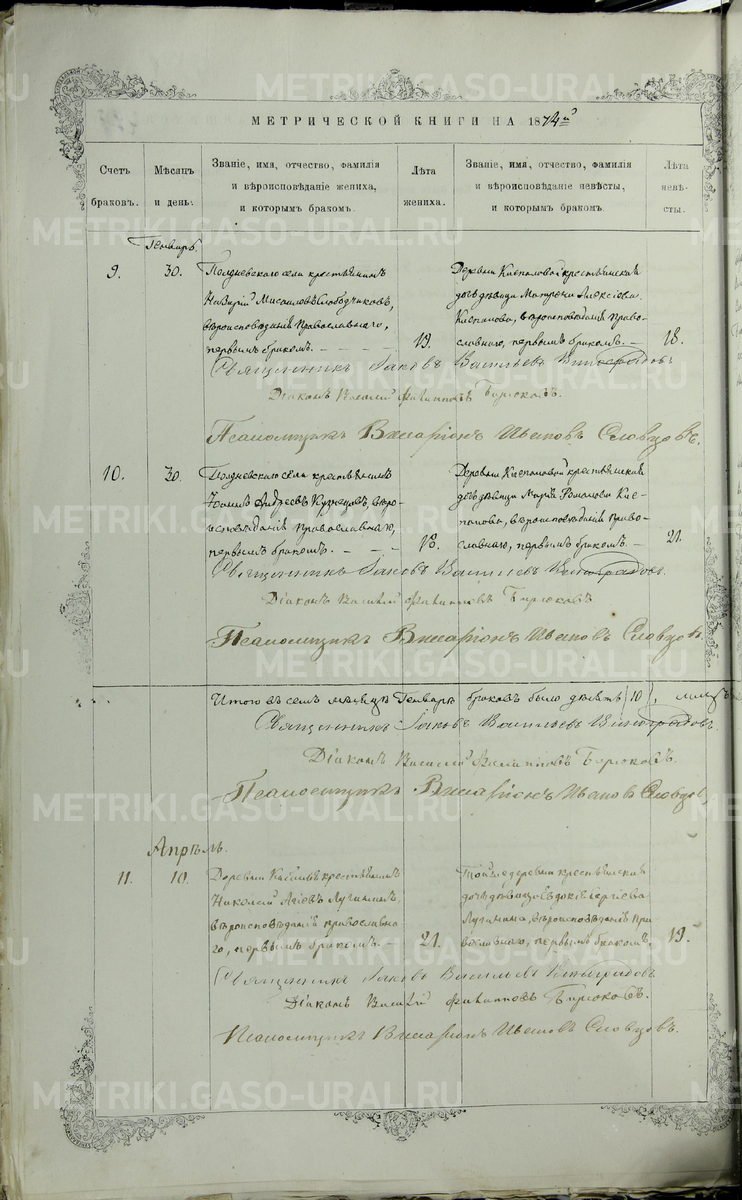 МЕТРИЧЕСКОЙ КНИГИ НА 1874й
Счетъ браковъ.
Мѣсяцъ и день.
Званіе, имя, отчество, фамилія и вѣроисповѣданіе жениха, и которымъ бракомъ.
Лѣта жениха.
Званіе, имя, отчество, фамилія и вѣроисповѣданіе невѣсты, и которымъ бракомъ.
Лѣта невѣсты.
Генварь.
9.
30.
Полдневскаго села крестьянинъ
Назарій Слободчиковъ,
вѣроисповѣданія Православнаго,
первымъ бракомъ.
19.
Деревни крестьянская
дочь дѣвица Матрена Алексіева
вѣроисповѣданія Право-
славнаго, первымъ бракомъ.
18.
Священникъ Іаковъ Васильевъ Виноградовъ
Діаконъ Василій Филипповъ Бирюковъ.
Псаломщикъ Виссаріонъ Ивановъ Словцовъ.
10.
30.
Полдневскаго села крестьянинъ
Іоаннъ Андреевъ Кузнецовъ, вѣро-
исповѣданія Православнаго,
первымъ бракомъ.
18.
Деревни крестьянская
дочь дѣвица Марія
вѣроисповѣданія Право-
славнаго, первымъ бракомъ.
21.
Священникъ Іаковъ Васильевъ Виноградовъ.
Діаконъ Василій Филипповъ Бирюковъ
Псаломщикъ Виссаріонъ Ивановъ Словцовъ.
Итого въ семъ мѣсяцѣ Генварѣ браковъ было десять (10),
Священникъ Іаковъ Васильевъ Виноградовъ.
Діаконъ Василій Филипповъ Бирюковъ.
Псаломщикъ Виссаріонъ Ивановъ Словцовъ,
Апрѣль.
11.
10.
Деревни крестьянинъ
Николай Лузинъ,
вѣроисповѣданія православна-
го, первымъ бракомъ.
21.
Той же деревни крестьянская
дочь дѣвица Евдокія Сергіева
вѣроисповѣданія Пра-
вославнаго, первымъ бракомъ,
19.
Священникъ Іаковъ Васильевъ Виноградовъ
Діаконъ Василій Филипповъ Бирюковъ.
Псаломщикъ Виссаріонъ Ивановъ Словцовъ.
METRIKI.GASO-URAL.RU